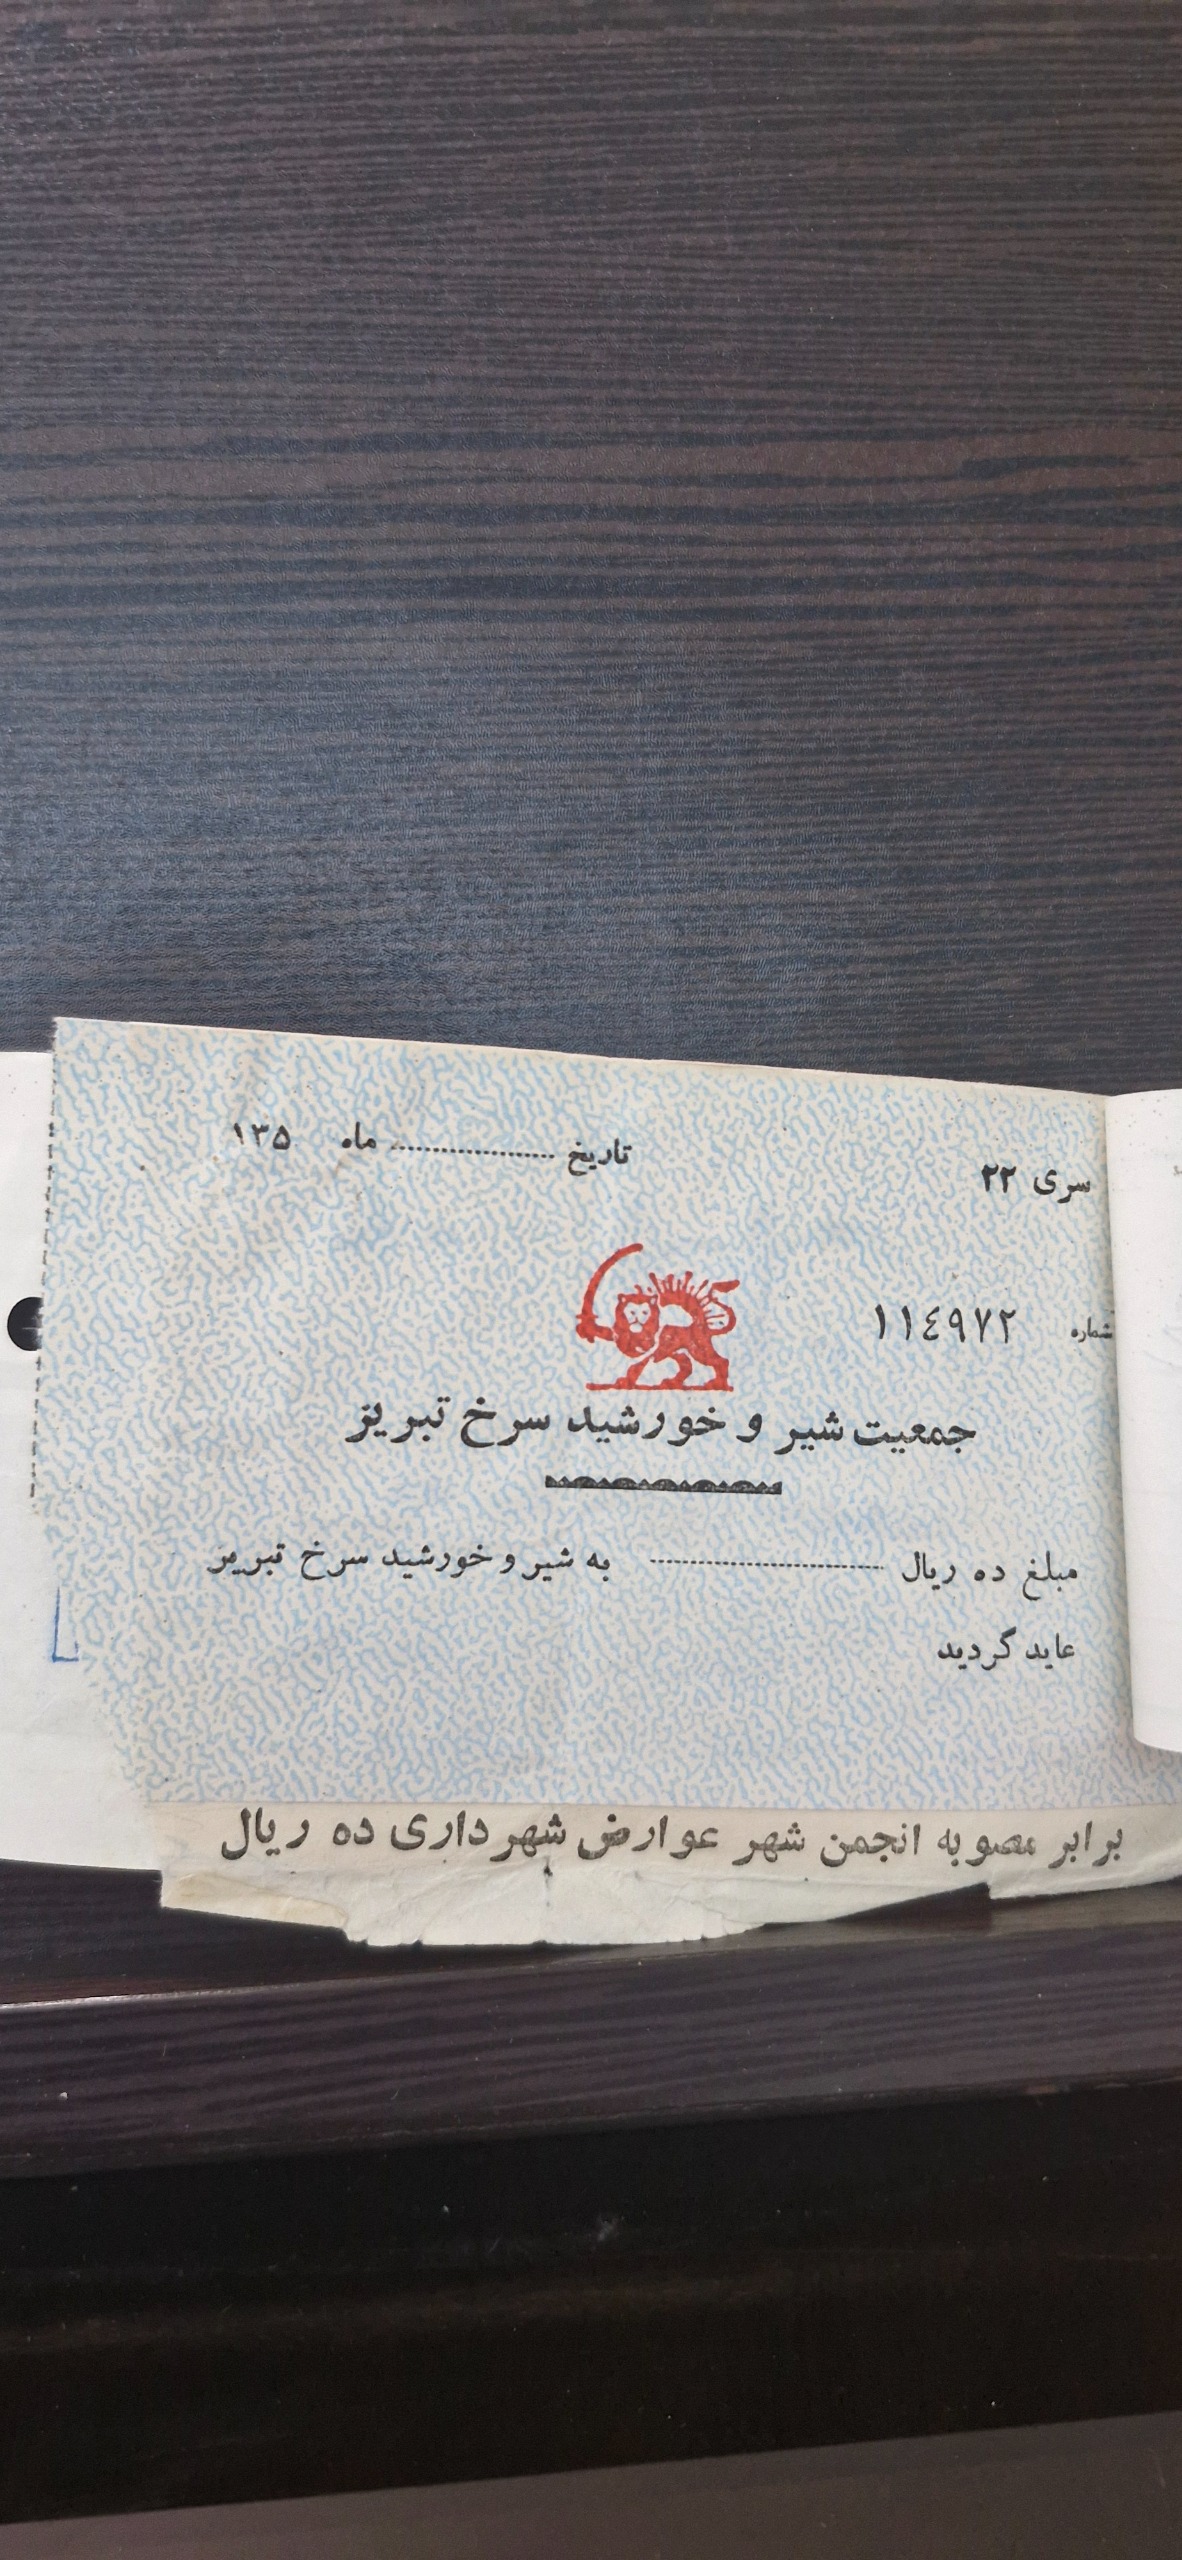 تاریخ .................... ماه ۱۳۵
سری ۲۲
شماره ۱۱٤۹۷۲
جمعیت شیر و خورشید سرخ تبریز
مبلغ ده ریال .................... به شیر و خورشید سرخ تبریز
عاید گردید
برابر مصوبه انجمن شهر عوارض شهرداری ده ریال